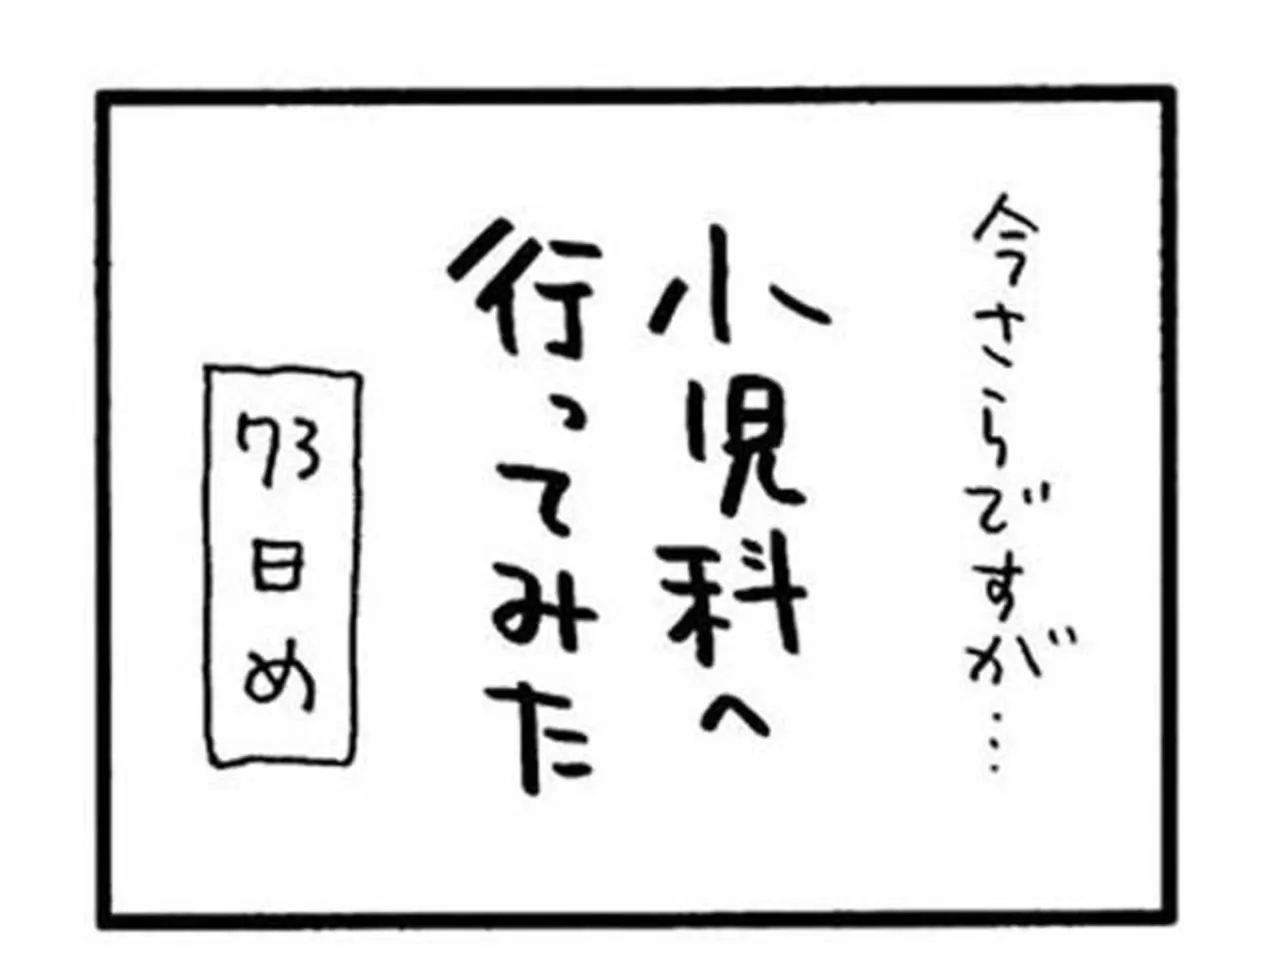 今さらですが…
小児科へ
行ってみた
73日め